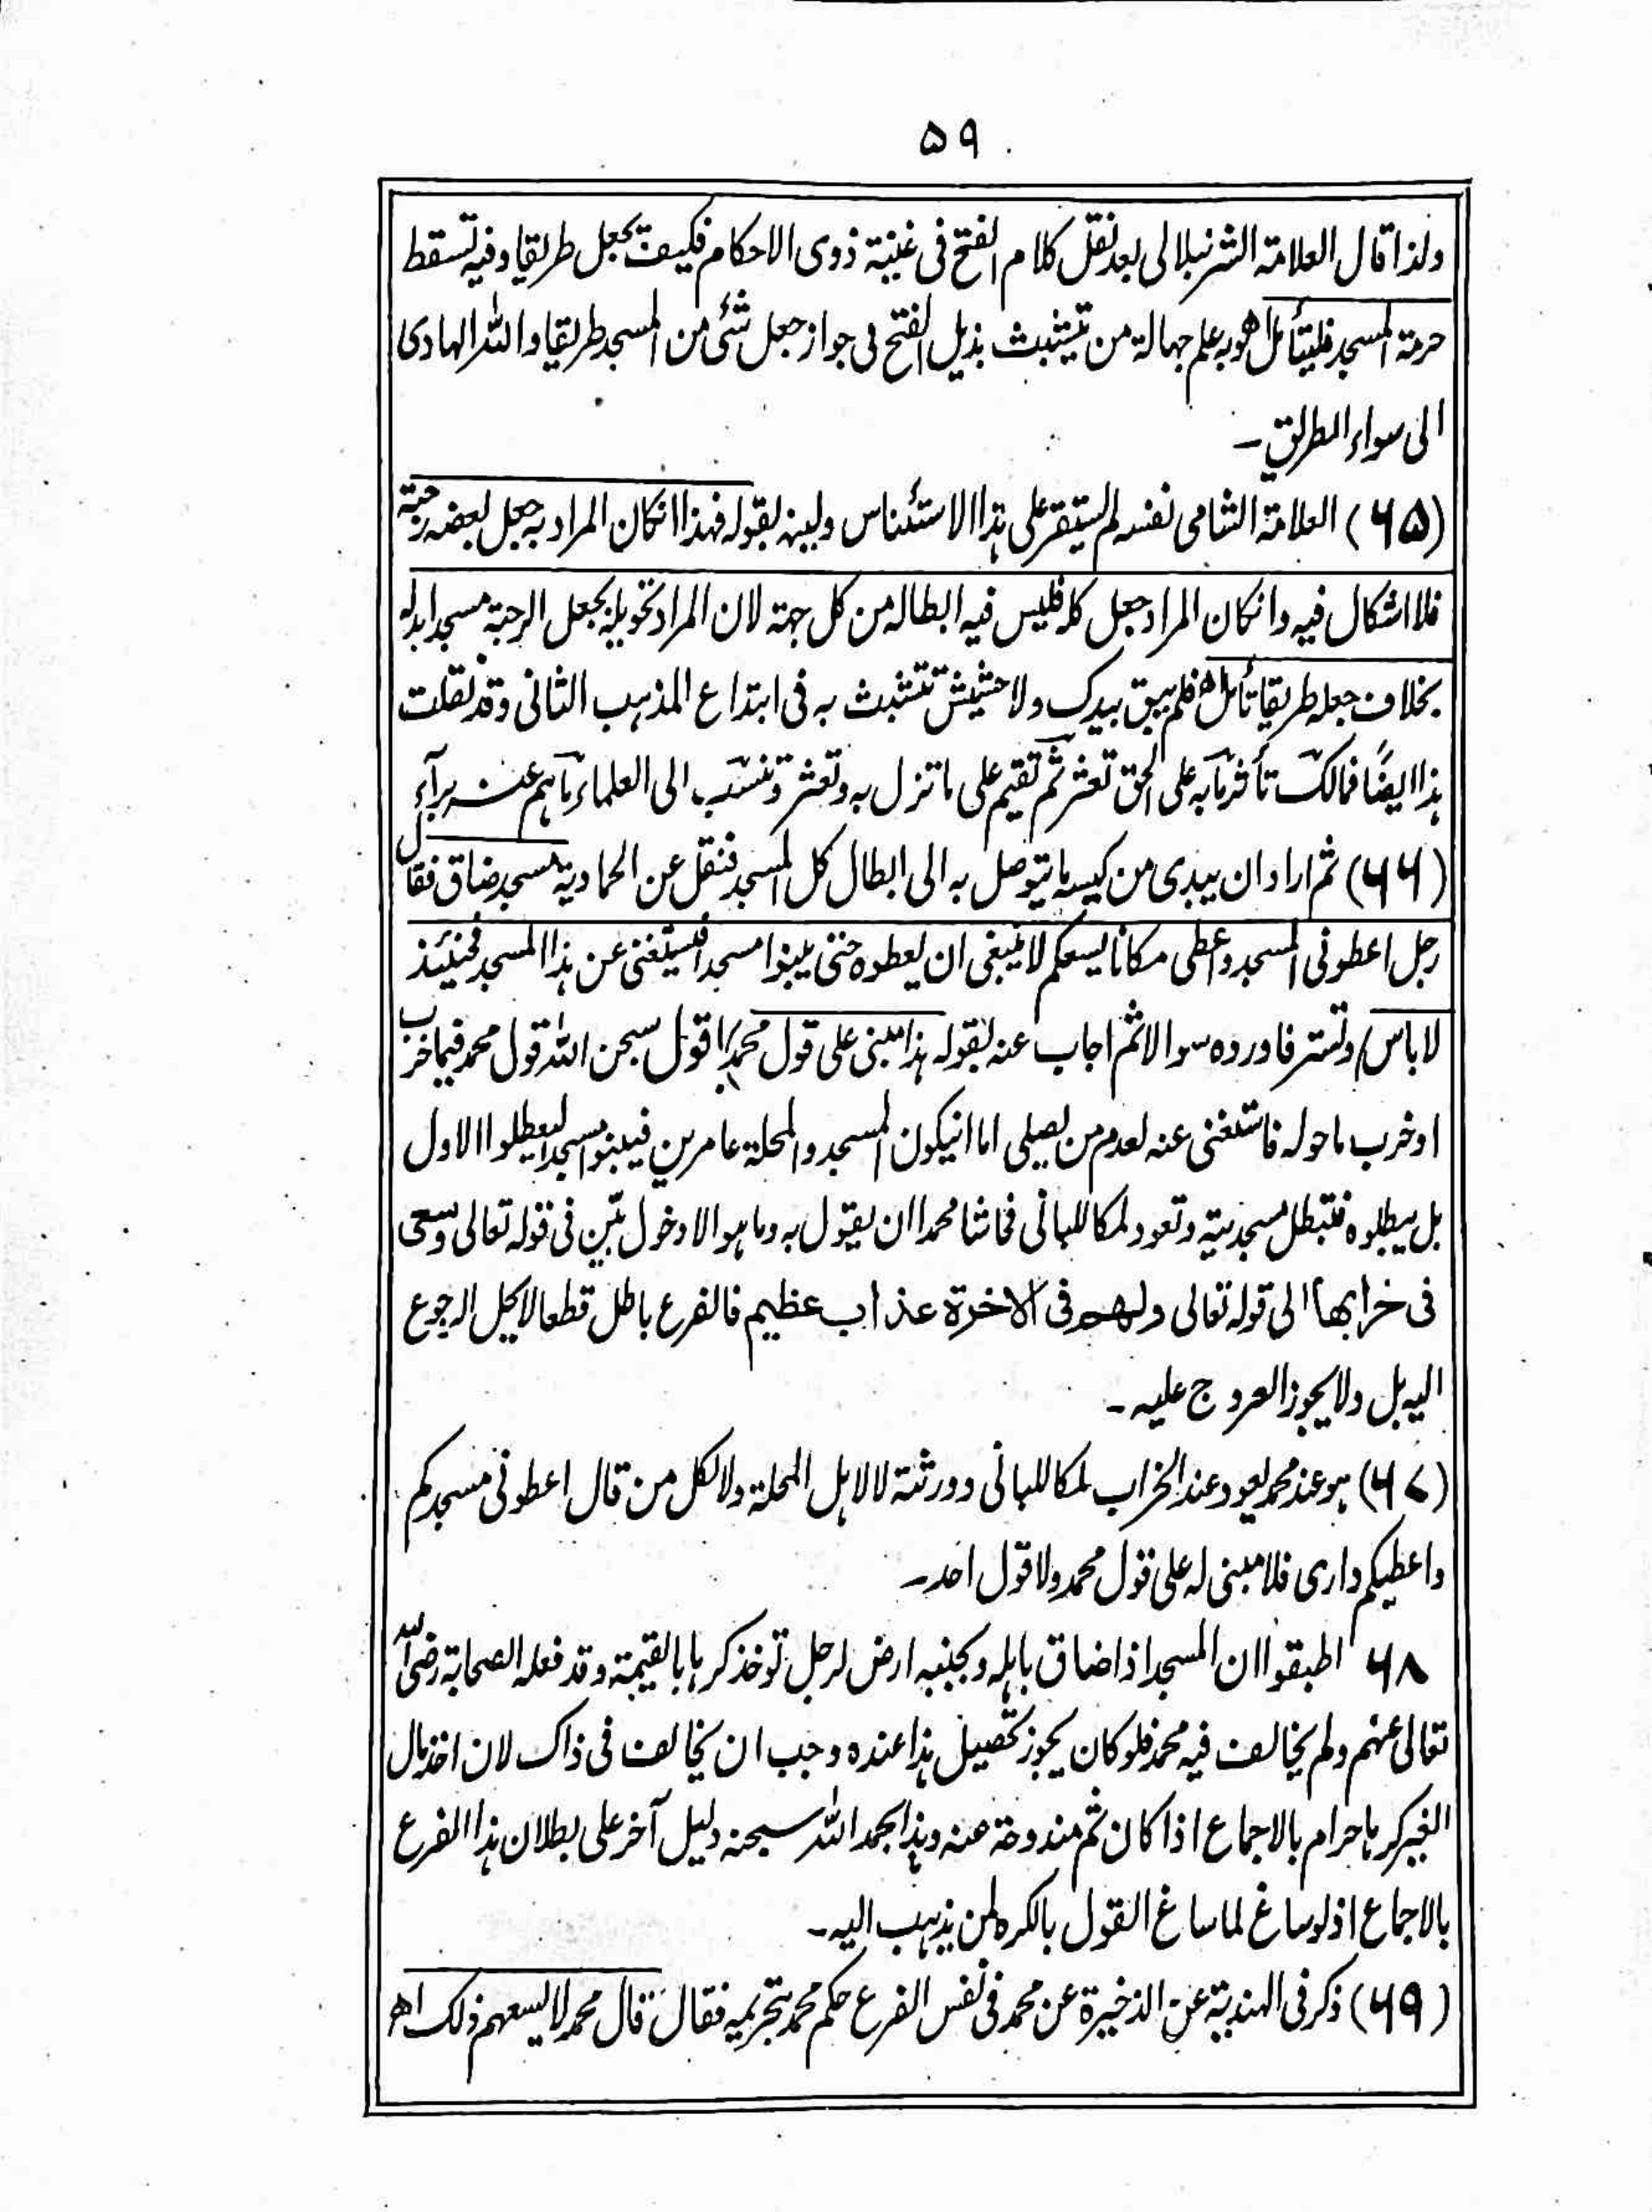 ۵۹
ولذا قال العلامة الشرنبلالی بعد نقل کلام الفتح فی غنیة ذوی الاحکام فکیف یجعل طریقا وفیه تسقط
حرمة المسجد فلیتأمل اھ وبه علم جهالة من یتشبث بذیل الفتح فی جواز جعل شئی من المسجد طریقا واللہ الهادی
الی سواء الطریق۔
(۶۵) العلامة الشامی نفسه لم یستقر علی هذا الاستئناس ولینه بقوله فهذا انکان المراد به جعل بعضه رحبة
فلا اشکال فیه وانکان المراد جعل کله فلیس فیه ابطاله من کل جهة لان المراد تحویله بجعل الرحبة مسجدا بدله
بخلاف جعله طریقا تأمل اھ فلم یبق بیدک ولا حشیش تتشبث به فی ابتداع المذهب الثانی وقد نقلت
هذا ایضًا فمالک تأفر مابه علی الحق تعثر ثم تقیم علی ما تزل به وتعثر وتنسب الی العلماء ماهم عنه برآء
(۶۶) ثم اراد ان یبدی من کیسه ما یتوصل به الی ابطال کل المسجد فنقل عن الحمادیة مسجد ضاق فقال
رجل اعطونی المسجد واعطی مکانا یسعکم لا ینبغی ان یعطوه حتی یبنوا مسجدا فیستغنی عن هذا المسجد فحینئذ
لاباس) وتستر فاورده سوالا ثم اجاب عنه بقوله هذا مبنی علی قول محمد) اقول سبحن اللہ قول محمد فیما خرب
او خرب ماحوله فاستغنی عنه لعدم من یصلی اما انیکون المسجد والمحلة عامرین فیبنوا مسجدا لیعطلوا الاول
بل یبطلوه فتبطل مسجدیته وتعود ملکا للبانی فحاشا محمدا ان یقول به وما هو الا دخول بین فی قوله تعالی وسعی
فی خرابها الی قوله تعالی ولهم فی الآخرة عذاب عظیم فالفرع باطل قطعا لا یحل الرجوع
الیه بل ولا یجوز العروج علیه۔
(۶۷) هو عند محمد یعود عند الخراب ملکا للبانی وورثته لا لاهل المحلة ولا لکل من قال اعطونی مسجدکم
واعطیکم داری فلا مبنی له علی قول محمد ولا قول احد۔
۶۸ اطبقوا ان المسجد اذا ضاق باهله وبجنبه ارض لرجل توخذ کرها بالقیمة وقد فعله الصحابة رضی اللہ
تعالی عنهم ولم یخالف فیه محمد فلوکان یجوز تحصیل هذا عنده وجب ان یخالف فی ذاک لان اخذ مال
الغیر کرها حرام بالاجماع اذا کان ثم مندوحة عنه وهذا بحمد اللہ سبحنه دلیل آخر علی بطلان هذا الفرع
بالاجماع اذ لوساغ لما ساغ القول بالکره لمن یذهب الیه۔
(۶۹) ذکر فی الهندیة عن الذخیرة عن محمد فی نفس الفرع حکم محمد بتحریمه فقال قال محمد لا یسعهم ذلک اھ